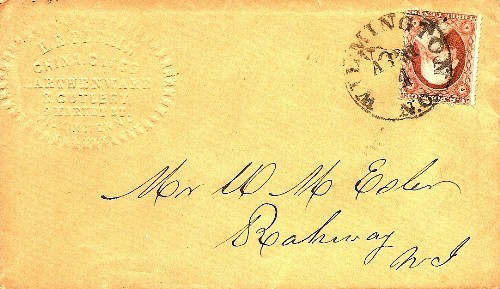 CHINA,
EARTHENWARE
& CUTLERY
WILMINGTON
APR
4
N.C.
Mr W M Esler
Rahway
NJ